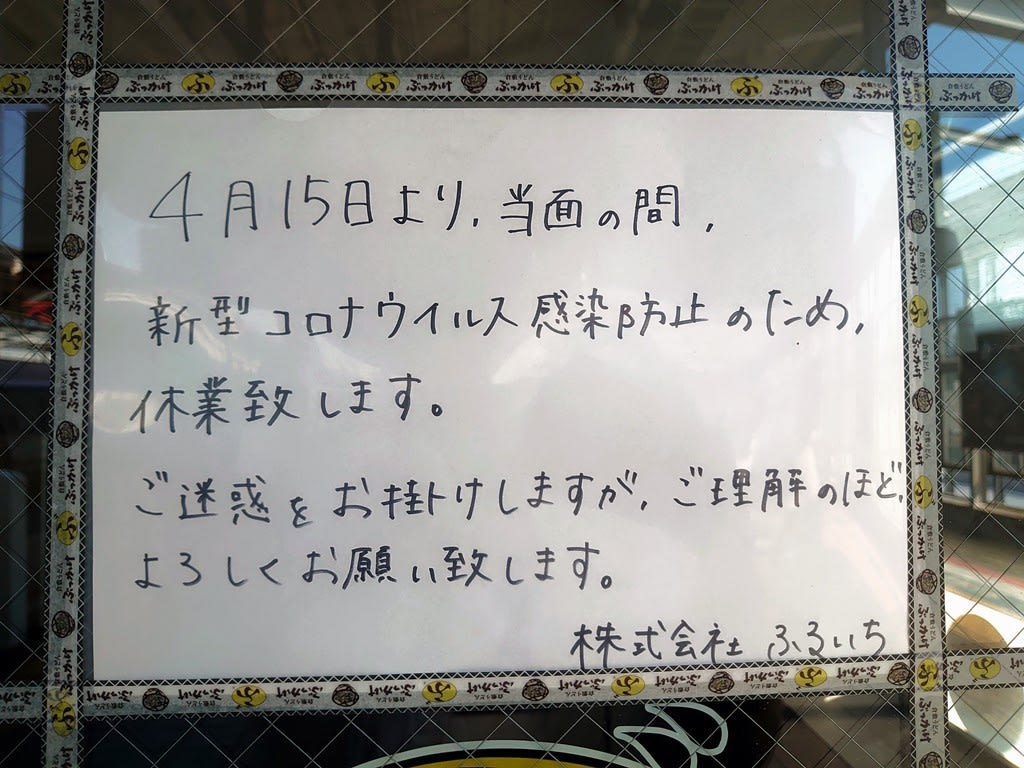 倉敷うどん ぶっかけ ふ
4月15日より、当面の間、
新型コロナウイルス感染防止のため、
休業致します。
ご迷惑をお掛けしますが、ご理解のほど、
よろしくお願い致します。
株式会社 ふるいち